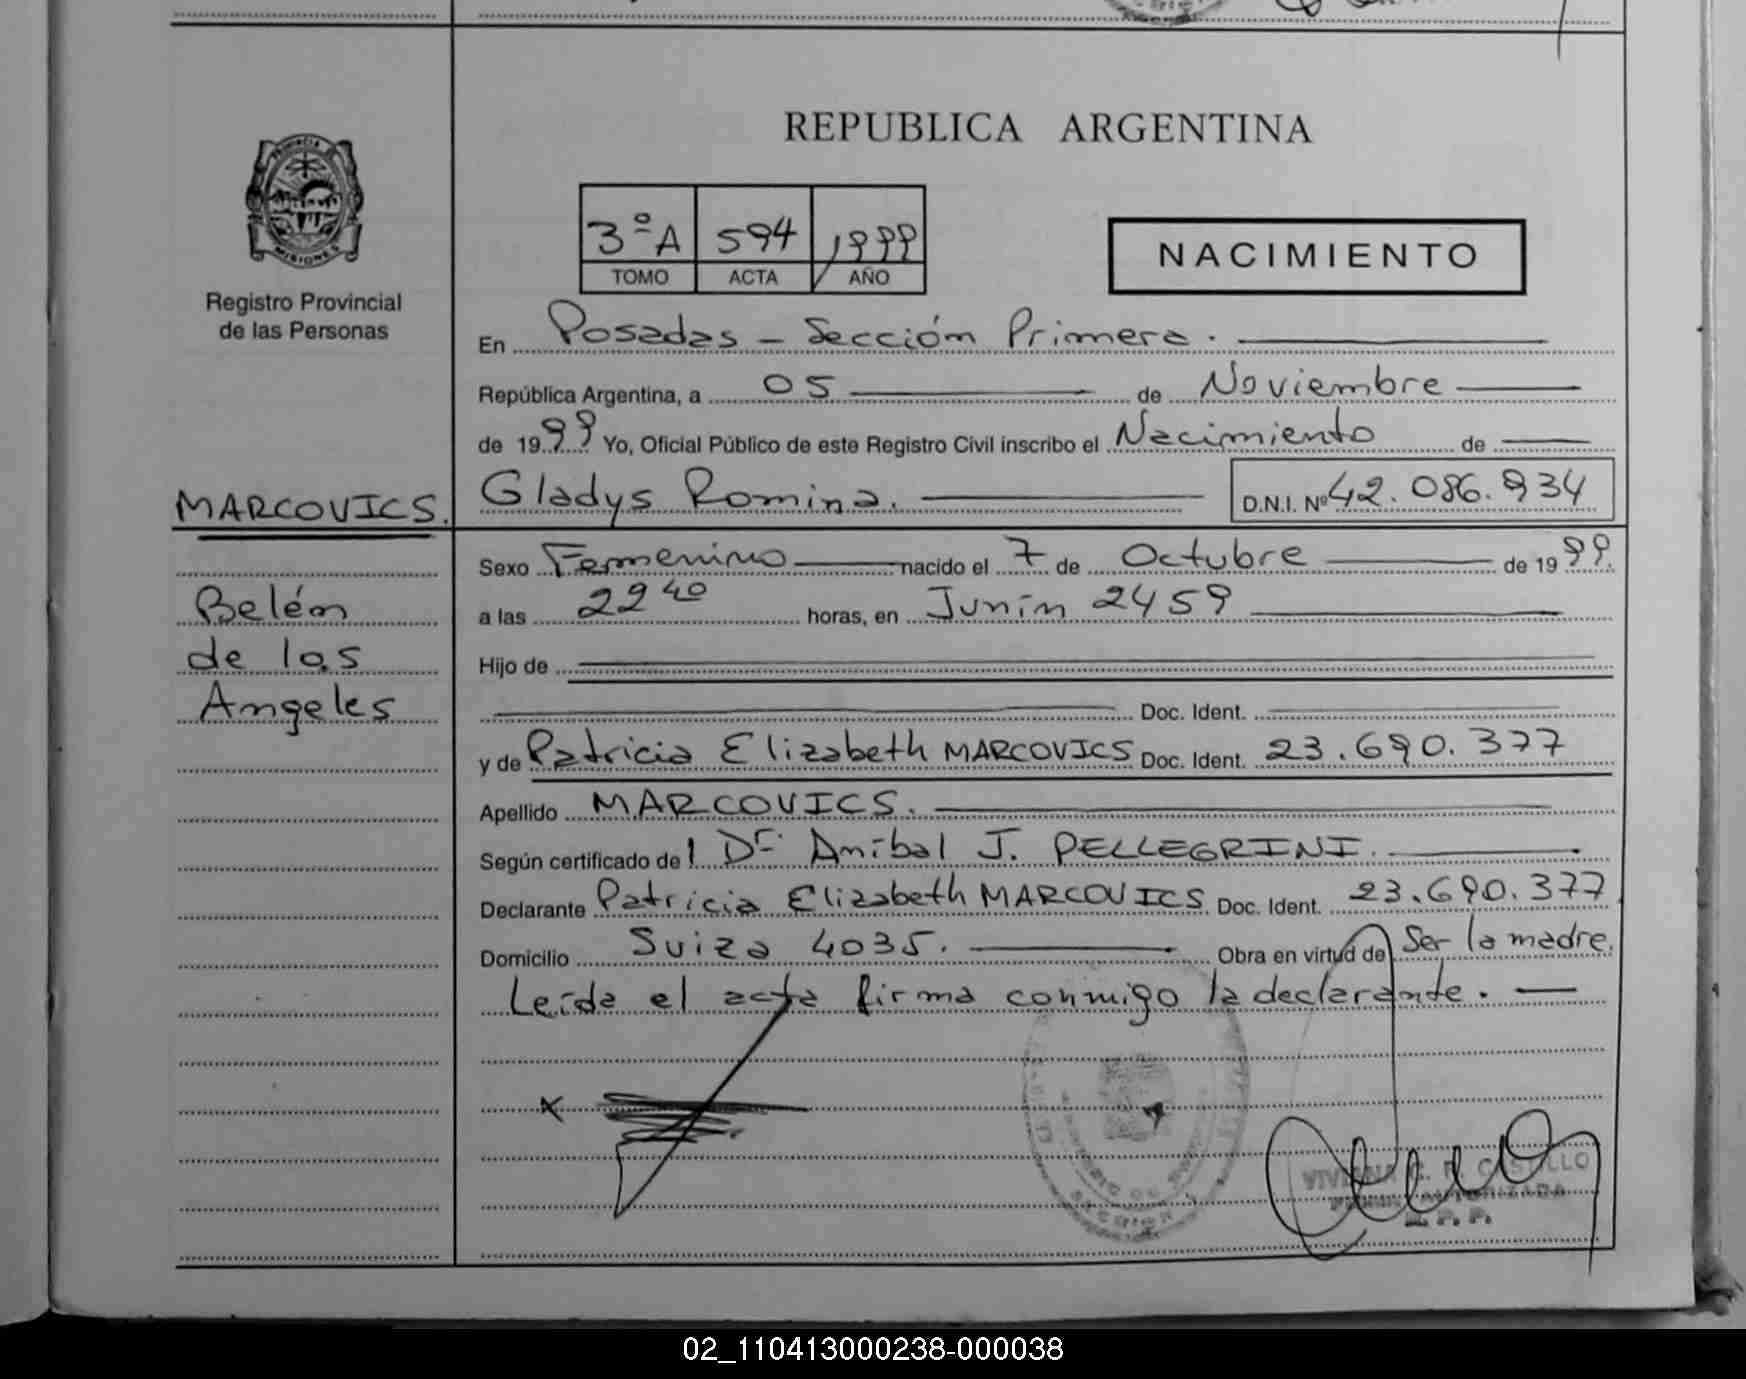 REPUBLICA ARGENTINA
3º A 594 1999
TOMO ACTA AÑO
NACIMIENTO
PROVINCIA DE
MISIONES
Registro Provincial
de las Personas
En Posadas - Sección Primera.
República Argentina, a 05 de Noviembre
de 1999 Yo, Oficial Público de este Registro Civil inscribo el Nacimiento de
MARCOVICS. Gladys Romina. D.N.I. Nº 42.086.934
Sexo Femenino nacido el 7 de Octubre de 1999.
Belén
a las 22 40 horas, en Junín 2459
de los
Hijo de
Angeles
Doc. Ident.
y de Patricia Elizabeth MARCOVICS Doc. Ident. 23.690.377
Apellido MARCOVICS.
Según certificado del Dr. Aníbal J. PELLEGRINI.
Declarante Patricia Elizabeth MARCOVICS. Doc. Ident. 23.690.377
Domicilio Suiza 4035. Obra en virtud de Ser la madre.
Leída el acta firma conmigo la declarante.
x
CASTILLO
AUTORIZADA
02_110413000238-000038